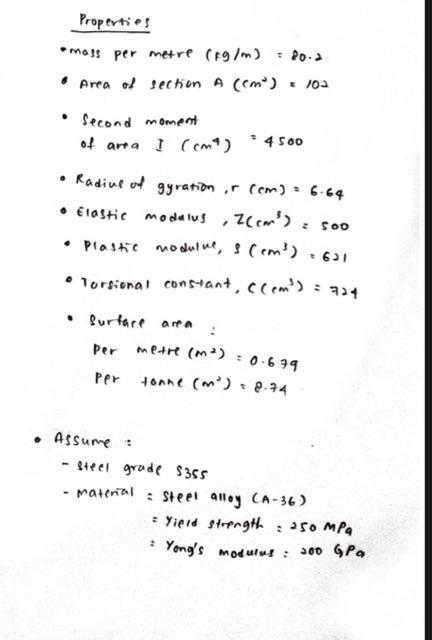 Properties
• mass per metre (kg/m) = 80.2
• Area of section A (cm²) = 102
• Second moment
of area I (cm⁴) = 4500
• Radius of gyration, r (cm) = 6.64
• Elastic modulus, Z(cm³) = 500
• Plastic modulus, S (cm³) = 621
• Torsional constant, C(cm³) = 724
• Surface area :
Per metre (m²) = 0.679
Per tonne (m²) = 8.74
• Assume :
- Steel grade S355
- Material = Steel alloy (A-36)
= Yield strength = 250 MPa
= Yong's modulus = 200 GPa